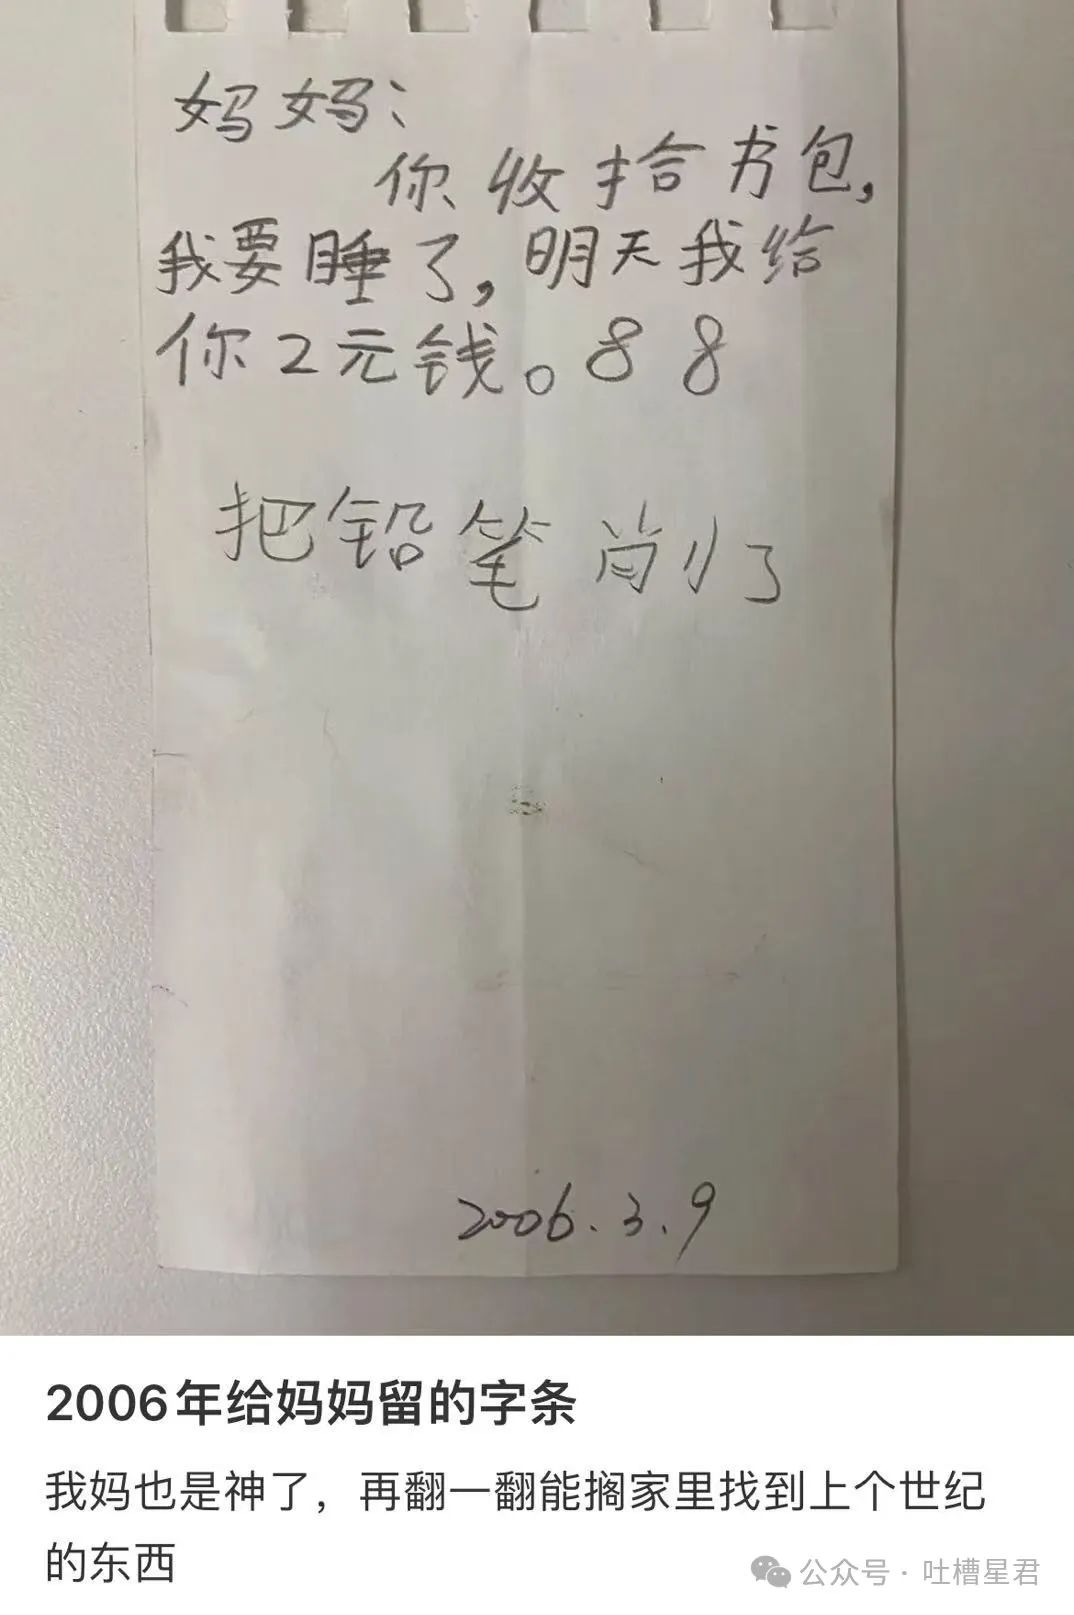 妈妈：
你收拾书包，
我要睡了，明天我给
你2元钱。88
把铅笔削了
2006.3.9
2006年给妈妈留的字条
我妈也是神了，再翻一翻能搁家里找到上个世纪
的东西
公众号·吐槽星君